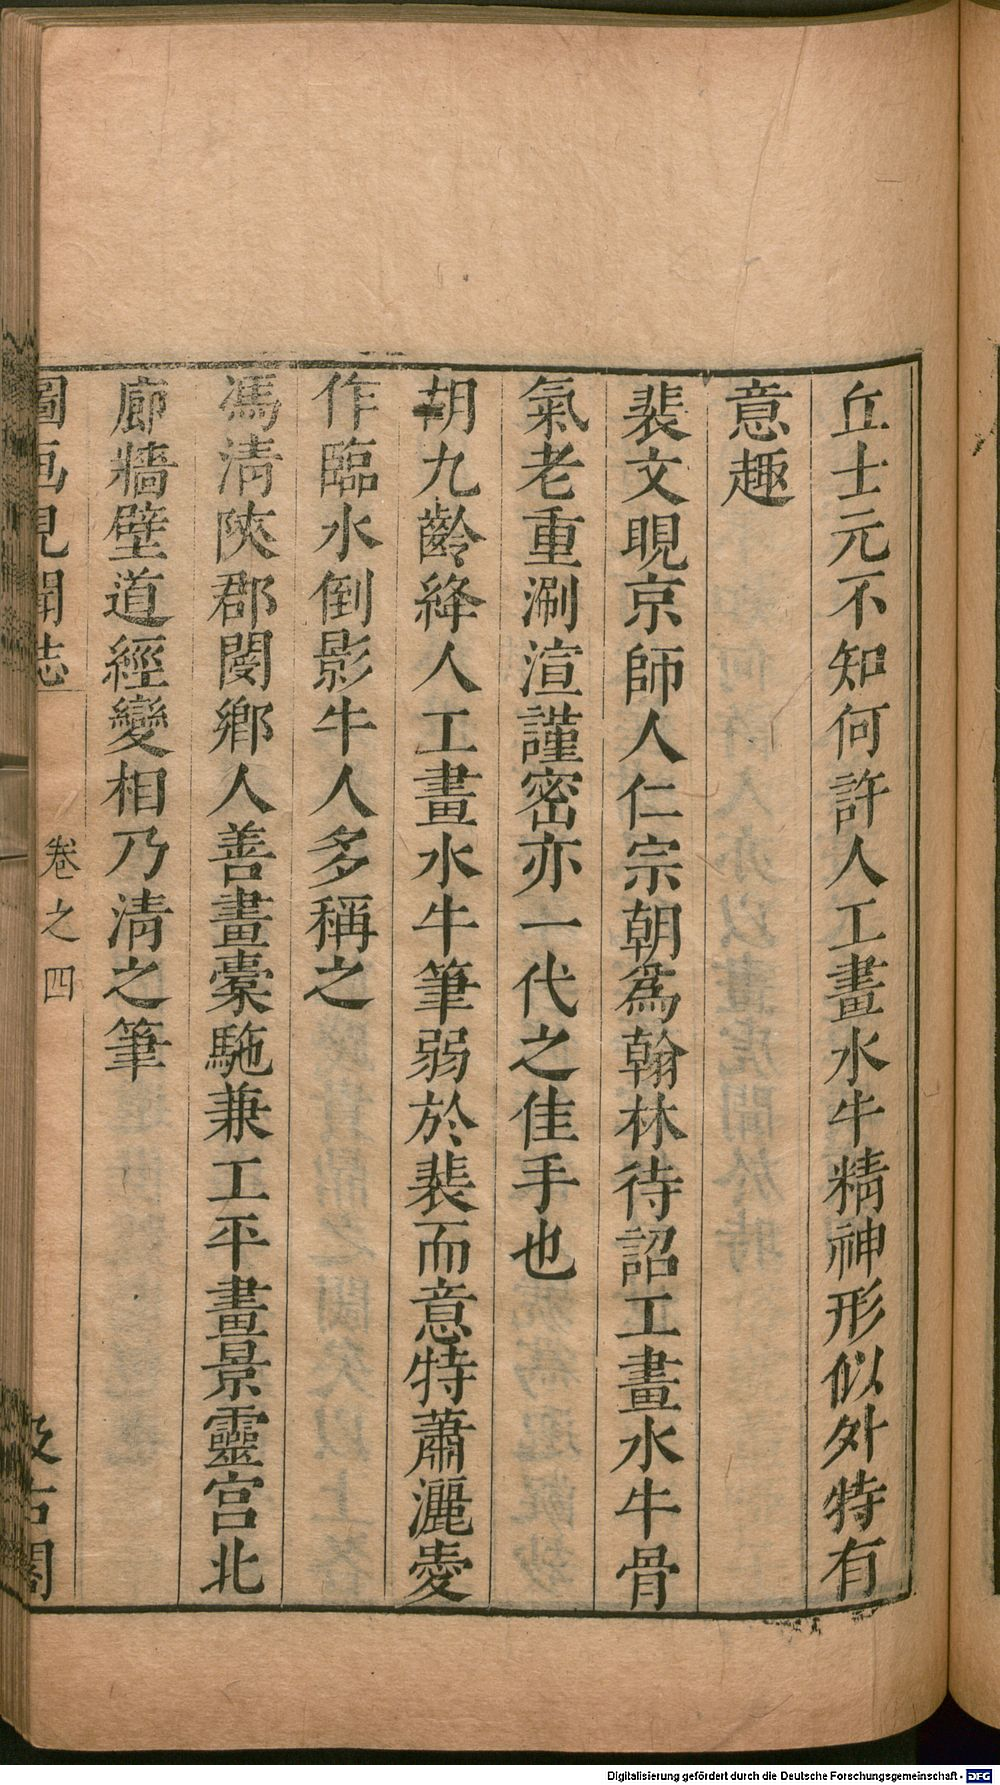 丘士元不知何許人工畫水牛精神形似外特有
意趣
裴文晛京師人仁宗朝爲翰林待詔工畫水牛骨
氣老重涮渲謹密亦一代之佳手也
胡九齡絳人工畫水牛筆弱於裴而意特蕭灑愛
作臨水倒影牛人多稱之
馮清陝郡閿鄉人善畫橐駞兼工平畫景靈宮北
廊牆壁道經變相乃清之筆
圖画見聞志 卷之四 汲古閣
Digitalisierung gefördert durch die Deutsche Forschungsgemeinschaft - DFG